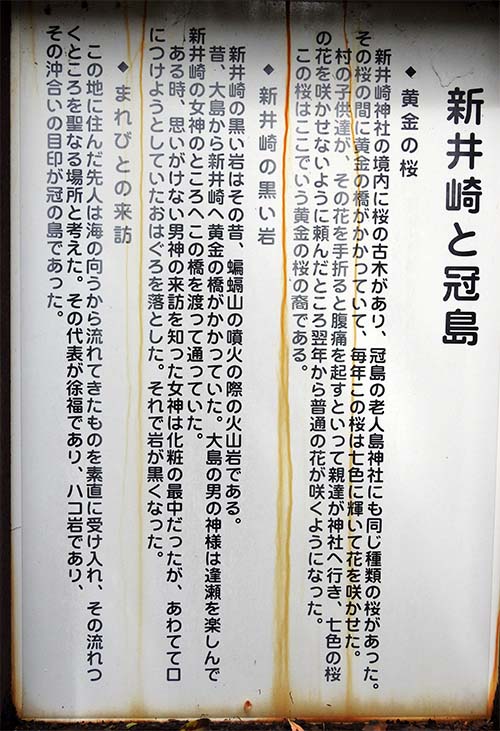 新井崎と冠島
◆ 黄金の桜
新井崎神社の境内に桜の古木があり、冠島の老人島神社にも同じ種類の桜があった。
その桜の間に黄金の橋がかかっていて、毎年この桜は七色に輝いて花を咲かせた。
村の子供達が、その花を手折ると腹痛を起すといって親達が神社へ行き、七色の桜
の花を咲かせないように頼んだところ翌年から普通の花が咲くようになった。
この桜はここでいう黄金の桜の裔である。
◆ 新井崎の黒い岩
新井崎の黒い岩はその昔、蝙蝠山の噴火の際の火山岩である。
昔、大島から新井崎へ黄金の橋がかかっていた。大島の男の神様は逢瀬を楽しんで
新井崎の女神のところへこの橋を渡って通っていた。
ある時、思いがけない男神の来訪を知った女神は化粧の最中だったが、あわてて口
につけようとしていたおはぐろを落とした。それで岩が黒くなった。
◆ まれびとの来訪
この地に住んだ先人は海の向うから流れてきたものを素直に受け入れ、その流れつ
くところを聖なる場所と考えた。その代表が徐福であり、ハコ岩であり、
その沖合いの目印が冠の島であった。